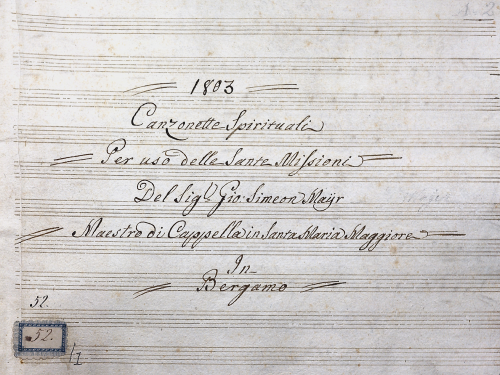 1803
Canzonette Spirituali
Per uso delle Sante Missioni
Del Sig.r Gio: Simeon Mayr
Maestro di Cappella in Santa Maria Maggiore
In
Bergamo
52.
52.